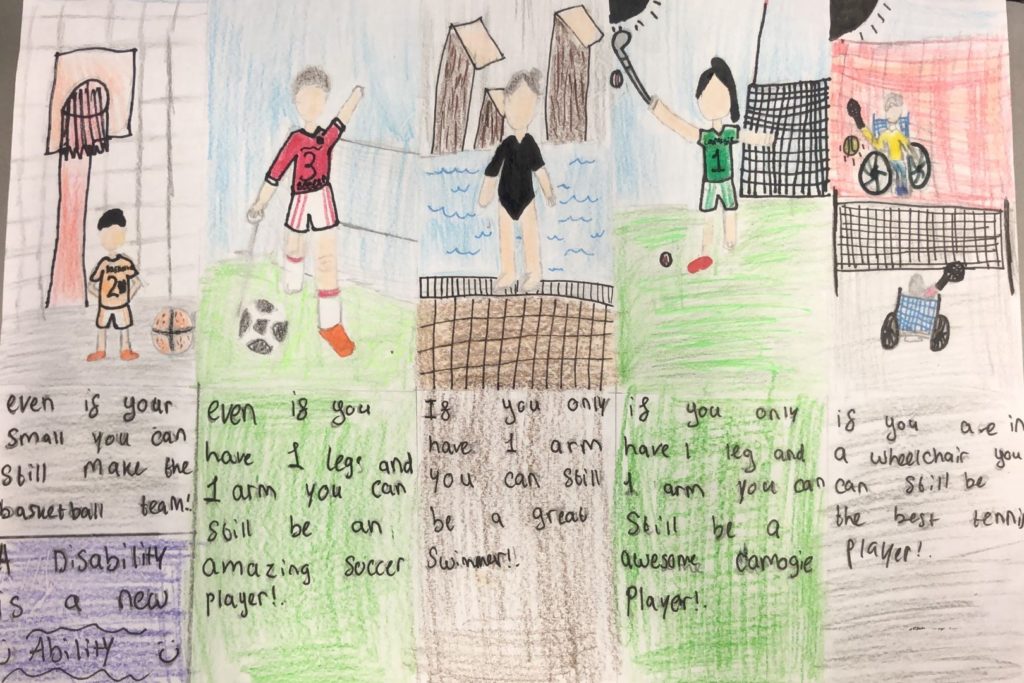 3
1
even if your
small you can
still make the
basketball team!.
A Disability
is a new
Ability
even if you
have 1 legs and
1 arm you can
still be an
amazing soccer
player!.
If you only
have 1 arm
you can still
be a great
swimmer!.
if you only
have 1 leg and
1 arm you can
still be a
awesome camogie
player!.
if you are in
a wheelchair you
can still be
the best tennis
player!.